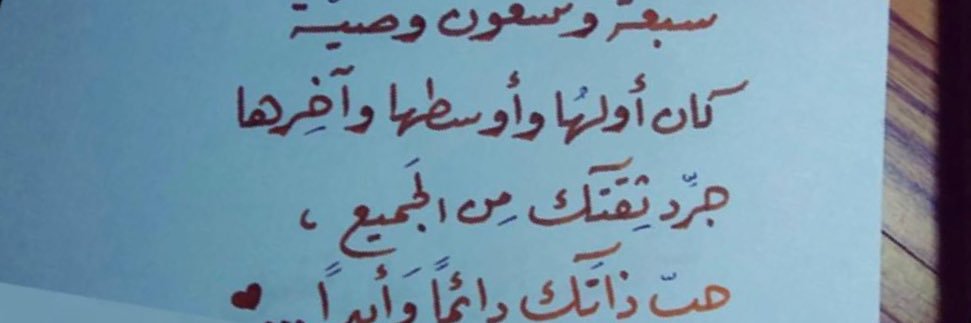 سبعة وسبعون وصيّة
كان أولهُا وأوسطها وآخِرها
جرِّد ثِقَتك مِن الجَميع ،
حبّ ذاتَك دائماً وَأبداً ... ♥